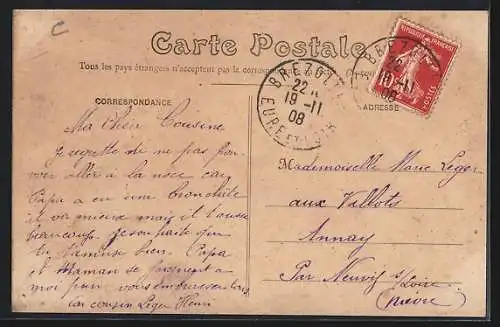 C
Carte Postale
Tous les pays étrangers n'acceptent pas la correspondance
CORRESPONDANCE
ADRESSE
REPUBLIQUE FRANÇAISE
10
POSTES
BREZOLLES
22
19-11
08
EURE-ET-LOIR
BREZOLLES
22
19-11
08
Ma Chère Cousine
je regrette de ne pas pou-
voir aller à la noce car
Papa a eu une bronchite
il va mieux mais il tousse
beaucoup. Je souhaite que
tu t'amuse bien. Papa
et Maman se joignent a
moi pour vous embrasser tous
ton cousin Léger Henri
Mademoiselle Marie Léger
aux Villots
Annay
Par Neuvy s/ Loire
Nièvre